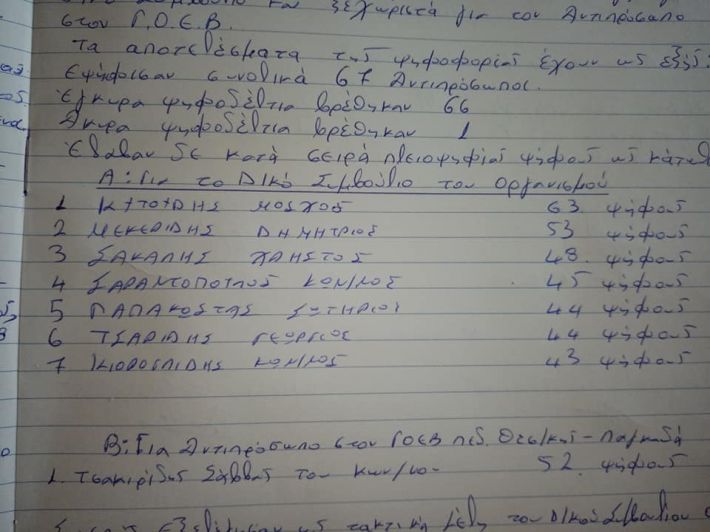 και ξεχωριστά για τον Αντιπρόσωπο
στον Γ.Ο.Ε.Β.
Τα αποτελέσματα της ψηφοφορίας έχουν ως εξής:
Εψήφισαν συνολικά 67 Αντιπρόσωποι.
Έγκυρα ψηφοδέλτια βρέθηκαν 66
Άκυρα ψηφοδέλτια βρέθηκαν 1
Έλαβαν δε κατά σειρά πλειοψηφίας ψήφους ως κάτωθι
Α: Για το Δ/κό Συμβούλιο του Οργανισμού
1 ΜΟΣΧΟΣ 63 ψήφους
2 ΜΕΚΕΡΙΔΗΣ ΔΗΜΗΤΡΙΟΣ 53 ψήφους
3 ΣΑΚΑΛΗΣ ΧΡΗΣΤΟΣ 48 ψήφους
4 ΣΑΡΑΝΤΟΠΟΥΛΟΣ ΚΩΝ/ΝΟΣ 45 ψήφους
5 ΠΑΠΑΚΩΣΤΑΣ ΣΩΤΗΡΙΟΣ 44 ψήφους
6 ΤΣΑΡΙΔΗΣ ΓΕΩΡΓΙΟΣ 44 ψήφους
7 ΚΩΝ/ΝΟΣ 43 ψήφους
Β: Για Αντιπρόσωπο στον ΓΟΕΒ πεδ. Θεσ/κης - Λαγκαδά
1. Τσακιρίδης Σάββας του Κων/νου 52 ψήφους
ως τακτικά μέλη του Δ/κού Συμβουλίου